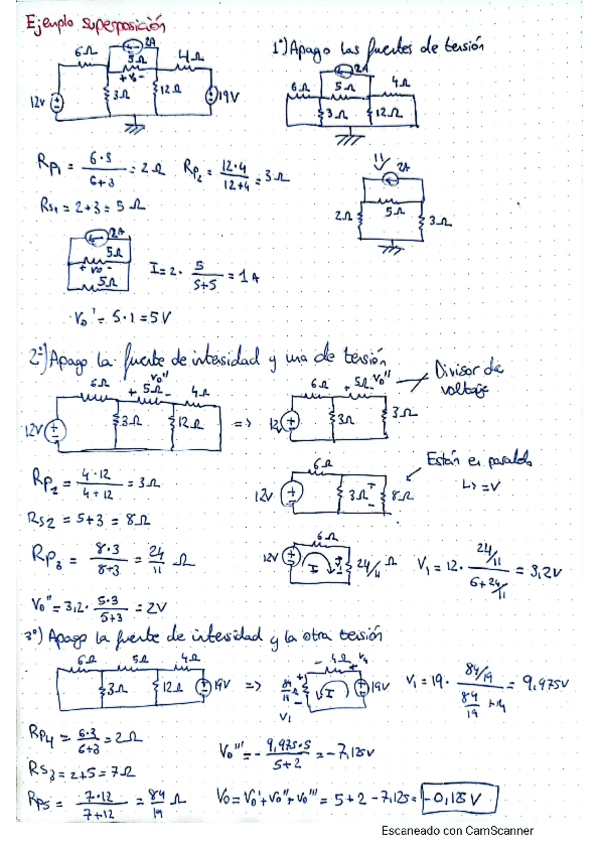 Ejemplo superposición
2A
6Ω 5Ω 4Ω
+ Vo -
12V 3Ω 12Ω 19V
1º) Apago las fuentes de tensión
2A
6Ω 5Ω 4Ω
3Ω 12Ω
Rp1 = 6·3/6+3 = 2Ω Rp2 = 12·4/12+4 = 3Ω
Rs1 = 2+3 = 5Ω
2A
2Ω 5Ω 3Ω
2A
5Ω
+ Vo -
5Ω
I = 2 · 5/5+5 = 1A
Vo' = 5·1 = 5V
2º) Apago la fuente de intensidad y una de tensión
Vo''
6Ω + 5Ω - 4Ω
12V 3Ω 12Ω
=>
6Ω + 5Ω - Vo''
12V 3Ω 3Ω
Divisor de voltaje
Rp2 = 4·12/4+12 = 3Ω
Rs2 = 5+3 = 8Ω
6Ω
12V 3Ω + - 8Ω
Están en paralelo
↳ = V
Rp3 = 8·3/8+3 = 24/11 Ω
6Ω
12V I 24/11 Ω
V1 = 12 · 24/11 / 6+24/11 = 3,2V
Vo'' = 3,2 · 5·3/5+3 = 2V
3º) Apago la fuente de intensidad y la otra tensión
6Ω 5Ω 4Ω
3Ω 12Ω 19V
=>
- 4Ω +
84/19 Ω I 19V
V1
V1 = 19 · 84/19 / 84/19 + 4 = 9,975V
Rp4 = 6·3/6+3 = 2Ω
Rs3 = 2+5 = 7Ω
Rp5 = 7·12/7+12 = 84/19 Ω
Vo''' = - 9,975·5/5+2 = -7,125V
Vo = Vo' + Vo'' + Vo''' = 5+2-7,125 = -0,125V
Escaneado con CamScanner